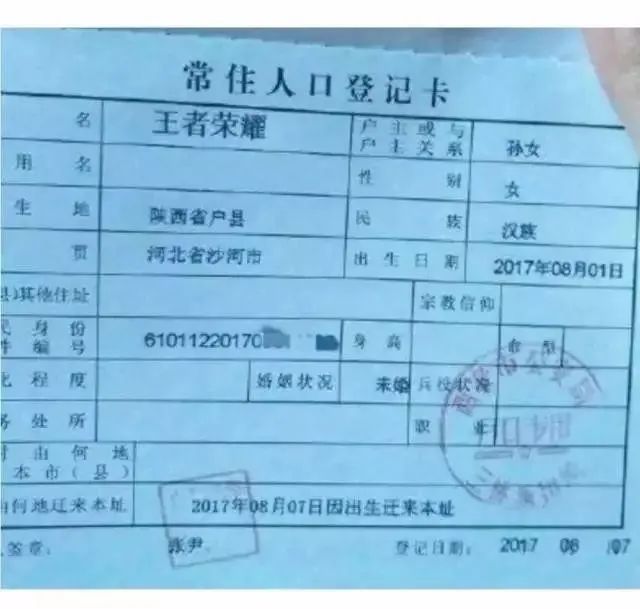 常住人口登记卡
名 王者荣耀 户主或与户主关系 孙女
用名 性别 女
生地 陕西省户县 民族 汉族
贯 河北省沙河市 出生日期 2017年08月01日
县)其他住址 宗教信仰
身份
编号 61011220170 身高 血型
程度 婚姻状况 未婚 兵役状况
务处所 职业
由何地
本市(县)
何地迁来本址 2017年08月07日因出生迁来本址
签章: 张尹 登记日期: 2017 08 07